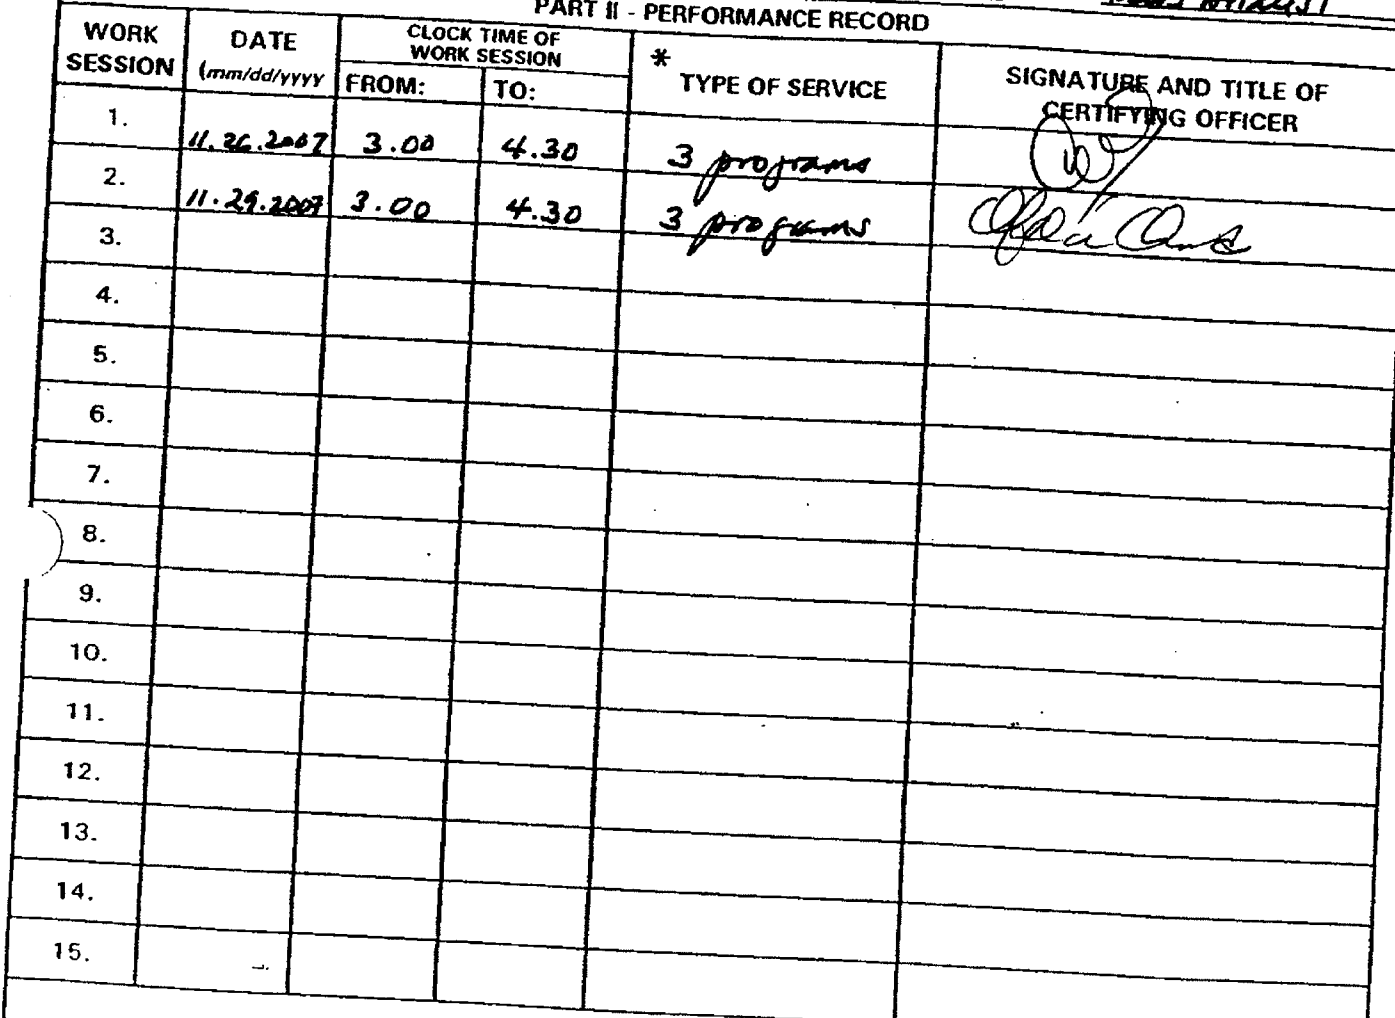 PART II - PERFORMANCE RECORD
WORK SESSION
DATE (mm/dd/yyyy
CLOCK TIME OF WORK SESSION
FROM:
TO:
*
TYPE OF SERVICE
SIGNATURE AND TITLE OF CERTIFYING OFFICER
1. 11.26.2007 3.00 4.30 3 programs
2. 11.29.2007 3.00 4.30 3 programs
3.
4.
5.
6.
7.
8.
9.
10.
11.
12.
13.
14.
15.